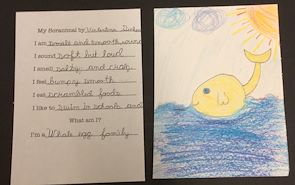 My Scranimal by
I am small and smooth, round
I sound soft but loud
I smell salty, and crab
I feel bumpy smooth
I eat scrambled foods
I like to swim in schools and
What am I?
I'm a Whale egg family